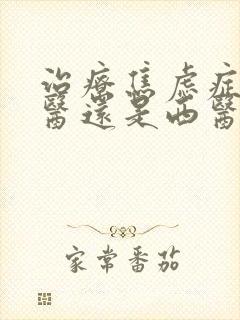 治療焦虑症
醫還是西醫
家常番茄